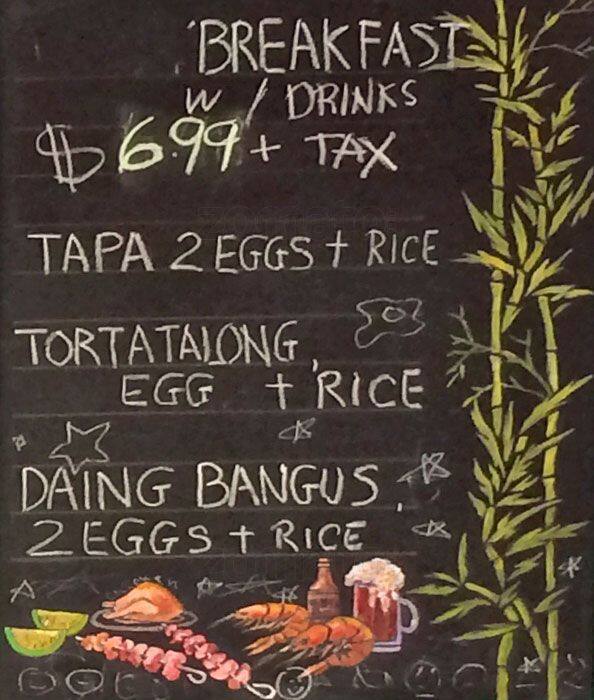 BREAKFAST
W / DRINKS
$6.99 + TAX
TAPA 2 EGGS + RICE
TORTATALONG,
EGG + RICE
DAING BANGUS,
2 EGGS + RICE